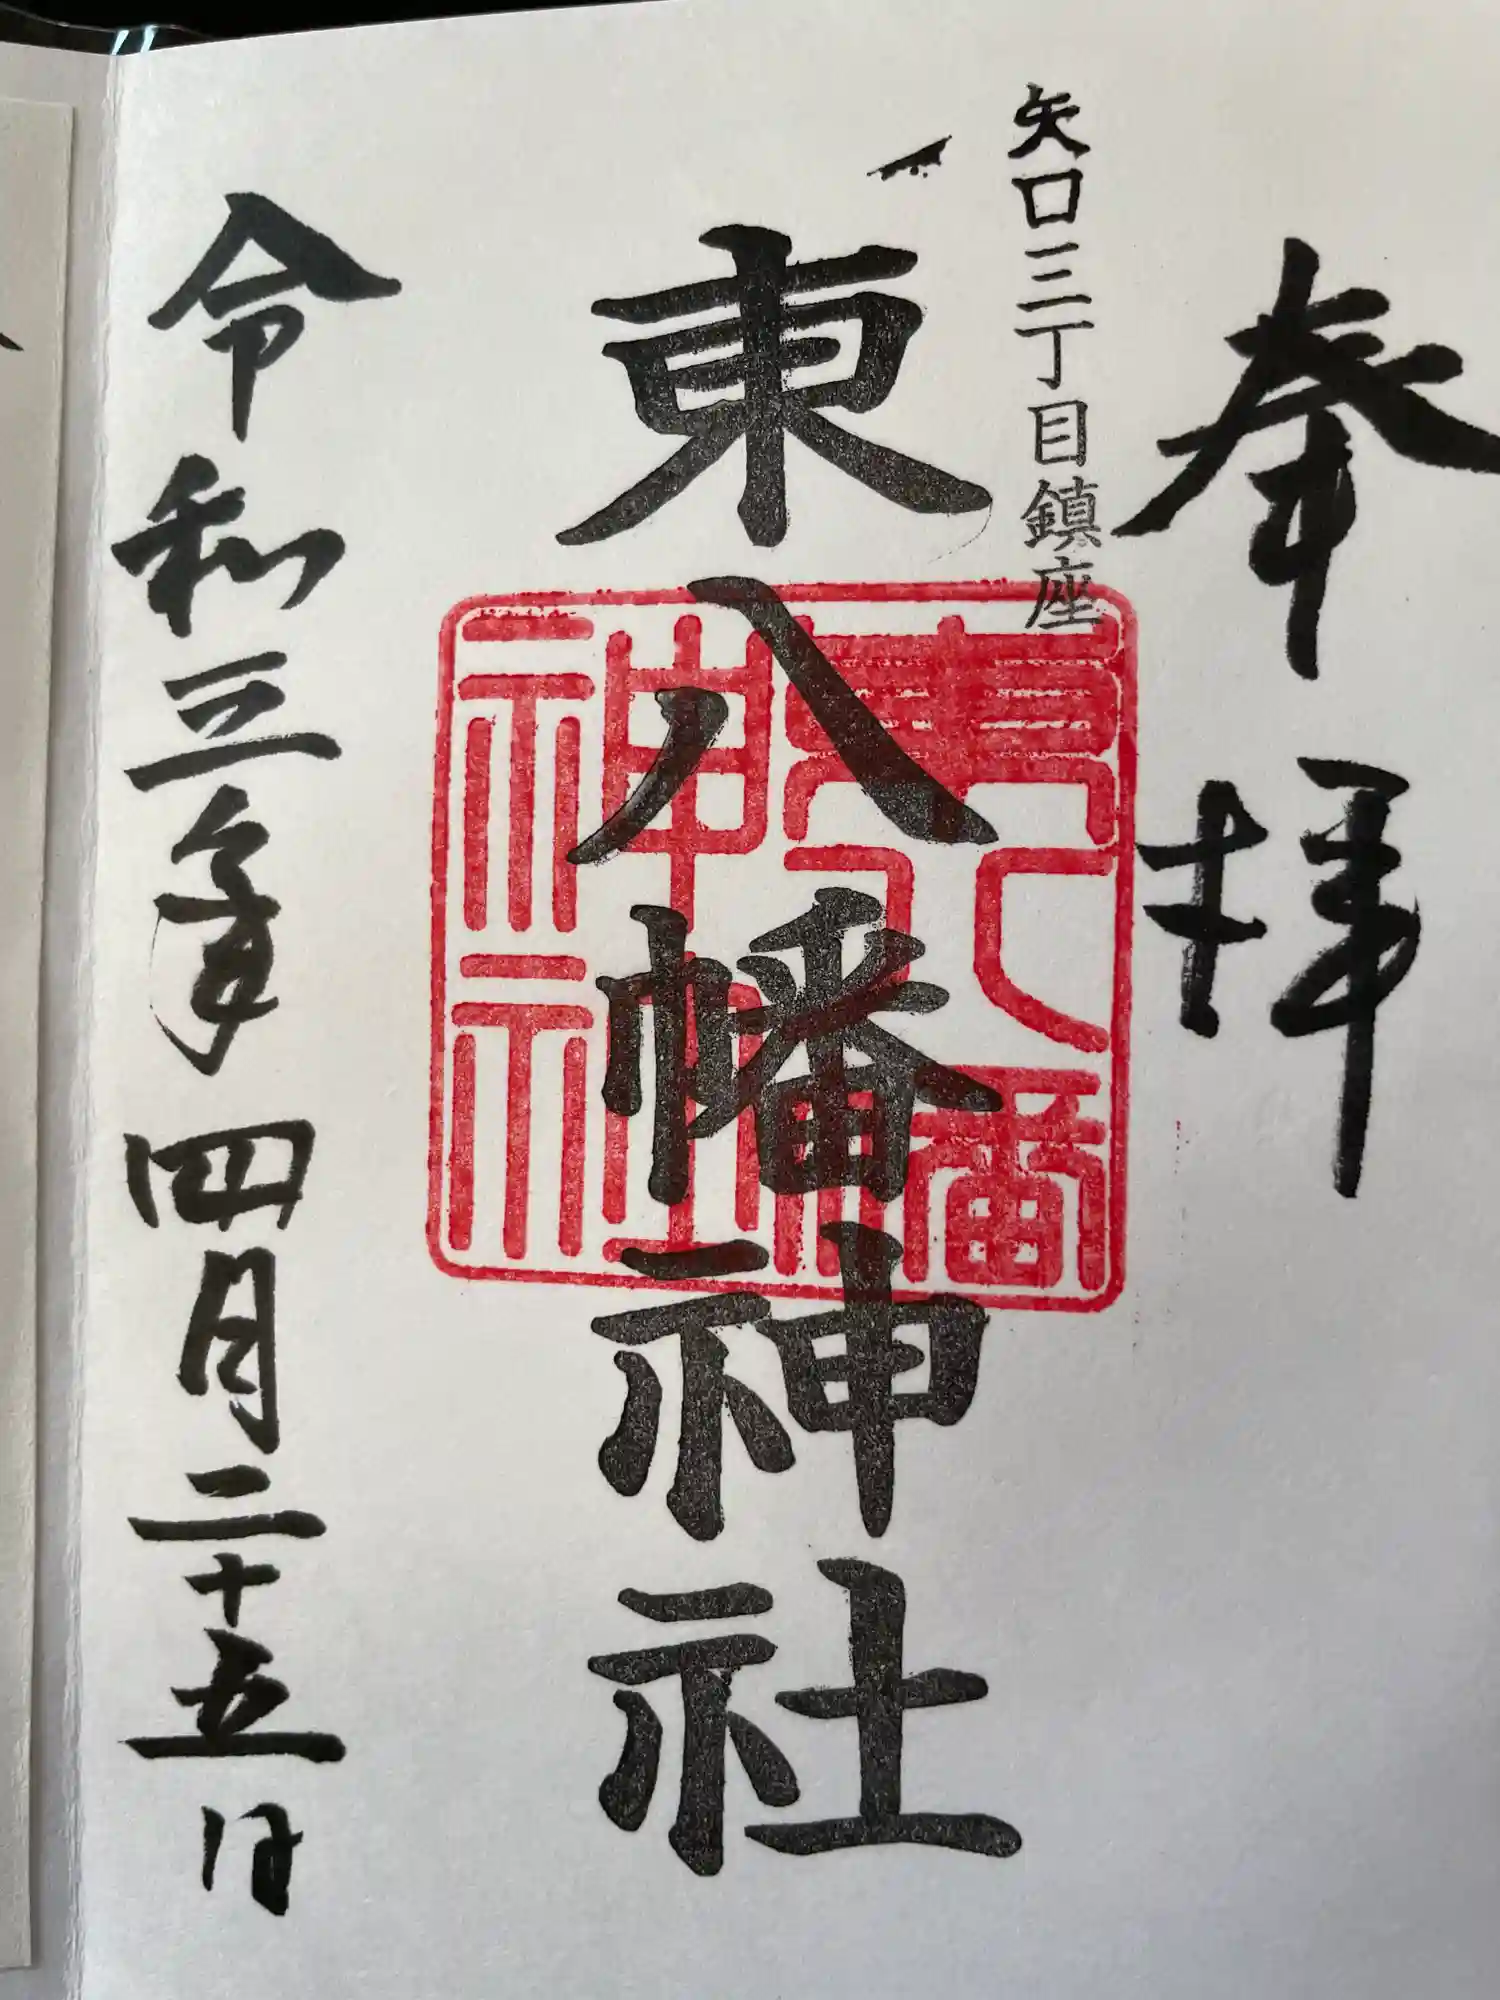 奉拝
矢口三丁目鎮座
東八幡神社
令和三年四月二十五日